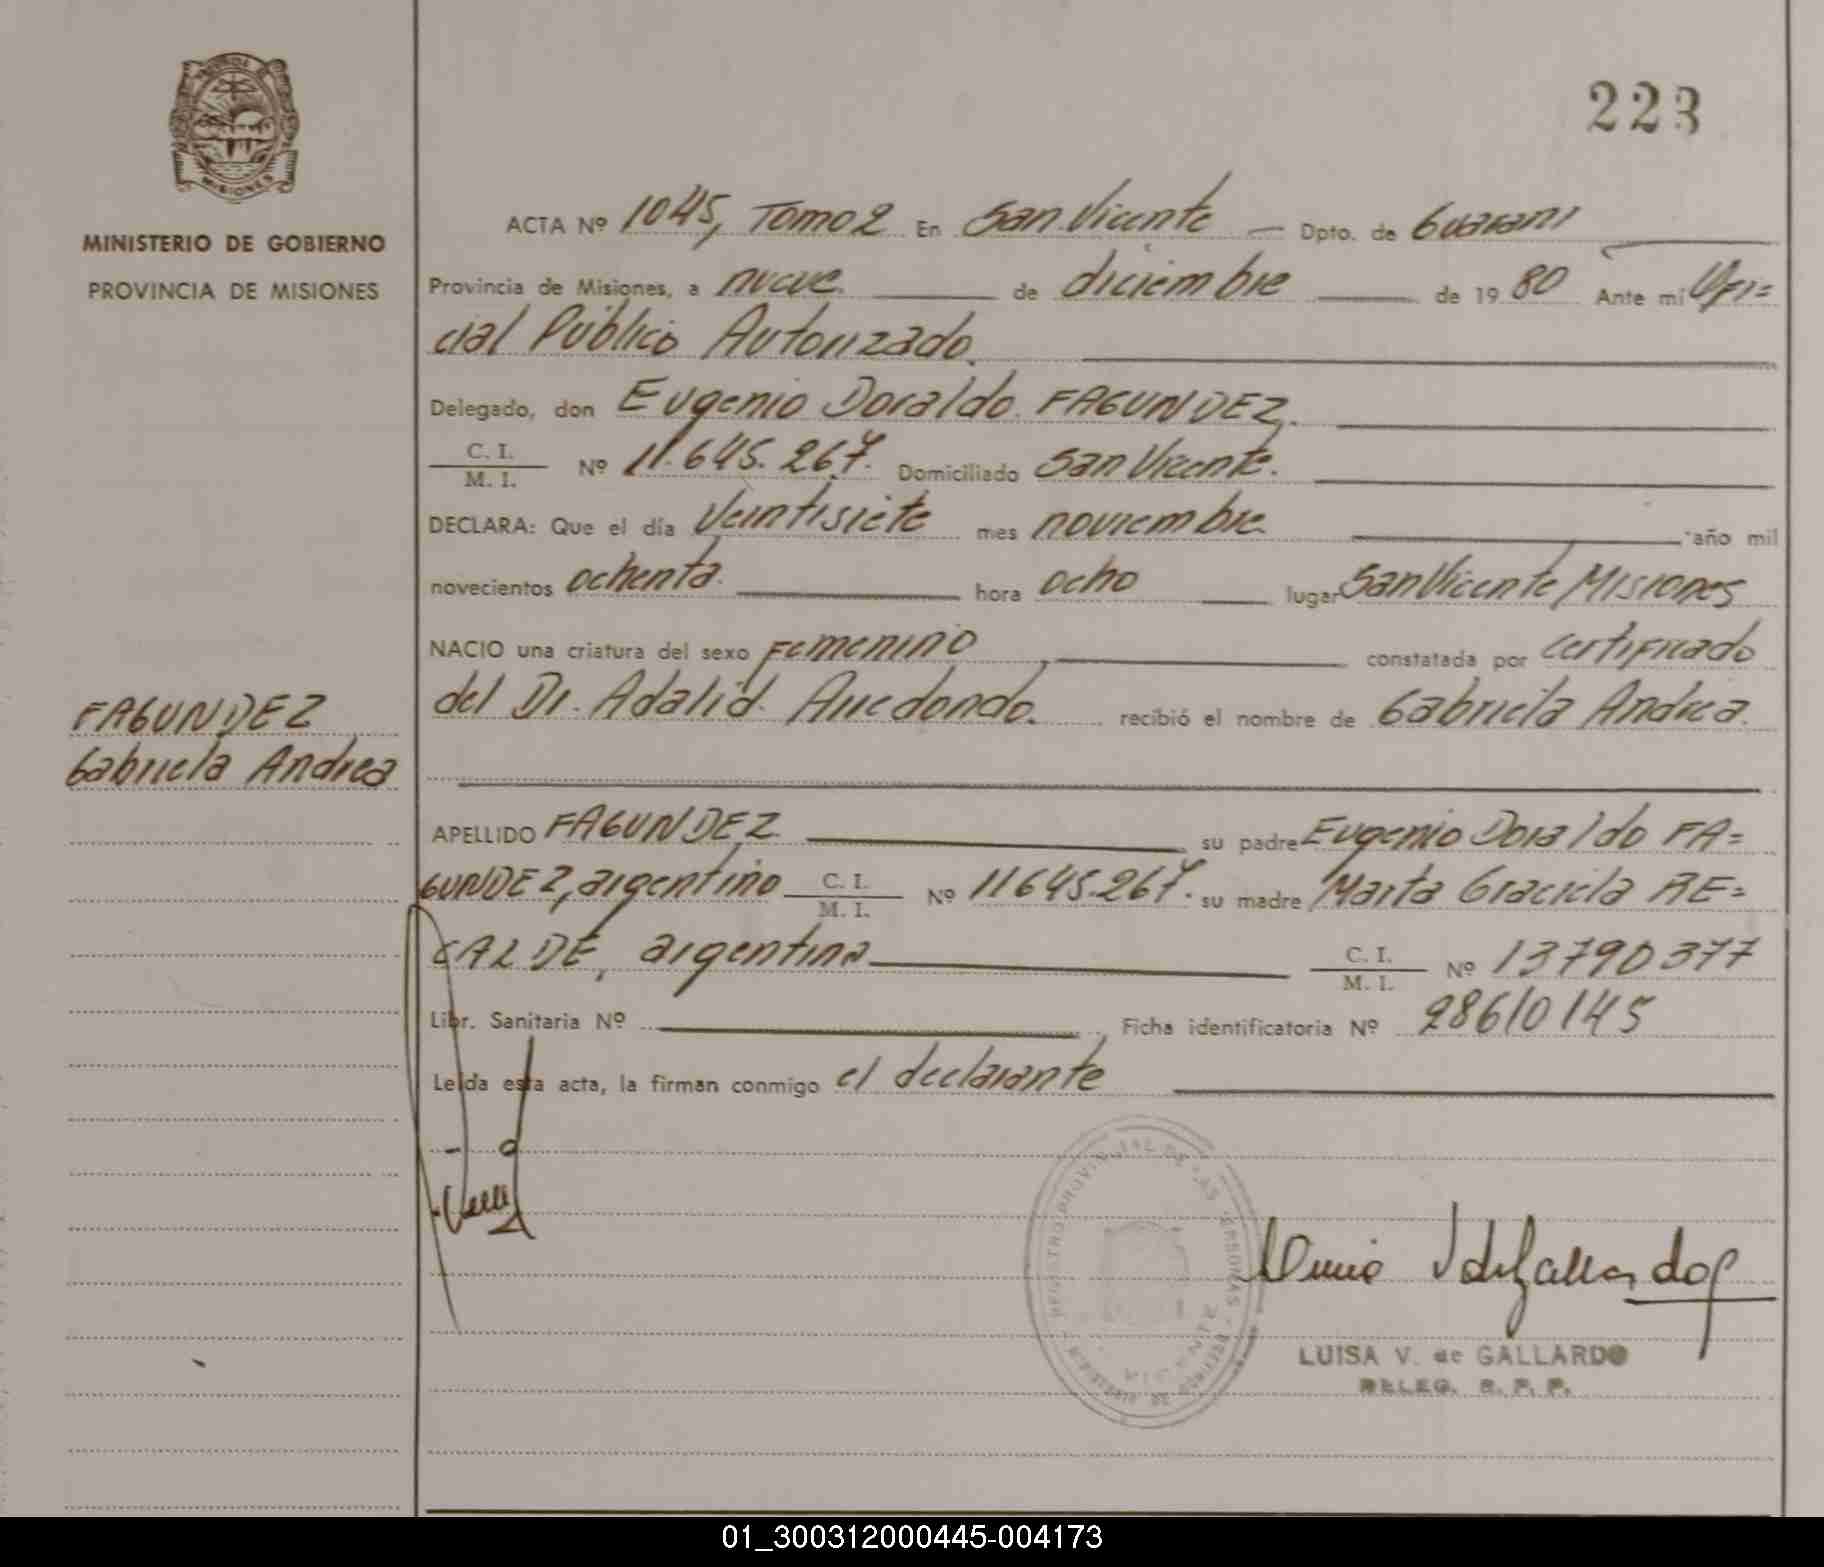 223
MISIONES
MINISTERIO DE GOBIERNO
PROVINCIA DE MISIONES
FAGUNDEZ
Gabriela Andrea
ACTA Nº 1045, Tomo 2 En San Vicente Dpto. de Guaraní
Provincia de Misiones, a nueve de diciembre de 1980 Ante mí Ofi=
cial Público Autorizado.
Delegado, don Eugenio Doraldo FAGUNDEZ.
C. I.
M. I. Nº 11.645.267. Domiciliado San Vicente.
DECLARA: Que el día Veintisiete mes noviembre año mil
novecientos ochenta hora ocho lugar San Vicente Misiones
NACIO una criatura del sexo Femenino, constatada por certificado
del Dr. Adalid Arredondo. recibió el nombre de Gabriela Andrea.
APELLIDO FAGUNDEZ su padre Eugenio Doraldo FA=
GUNDEZ, argentino C. I. M. I. Nº 11645.267. su madre Marta Graciela RE=
CALDE, argentina C. I. M. I. Nº 13790377
Libr. Sanitaria Nº Ficha identificatoria Nº 28610145
Leída esta acta, la firman conmigo el declarante
REGISTRO PROVINCIAL DE LAS PERSONAS
VICENTE
LUISA V. de GALLARDO
DELEG. R. P. P.
01_300312000445-004173